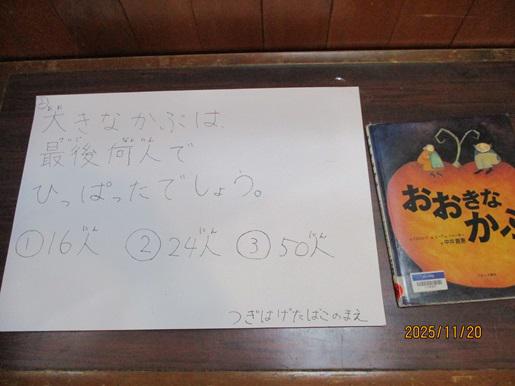 大きなかぶは、
最後何人で
ひっぱったでしょう。
①16人 ②24人 ③50人
つぎはげたばこのまえ
おおきな
かぶ
中井貴惠
2025/11/20